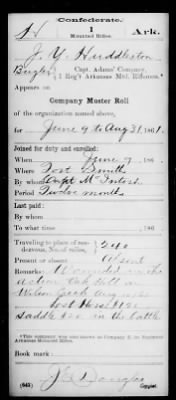 Confederate.
H 1 Ark.
Mounted Rifles.
J. Y. Huddleston
Bugler, Capt. Adams' Company,
1 Reg't Arkansas Mtd. Riflemen.*
Appears on
Company Muster Roll
of the organization named above,
for June 9 to Aug 31, 1861.
Joined for duty and enrolled:
When June 9, 186
Where Fort Smith
By whom Capt McIntosh
Period Twelve months
Last paid:
By whom
To what time , 186
Traveling to place of rendezvous, miles, 240
Present or absent Absent
Remarks: Wounded in the
action Oak Hill or
Wilson Creek Aug
lost Horse $120
saddle $20 in the battle
Book mark:
(642) J E Douglas
Copyist.